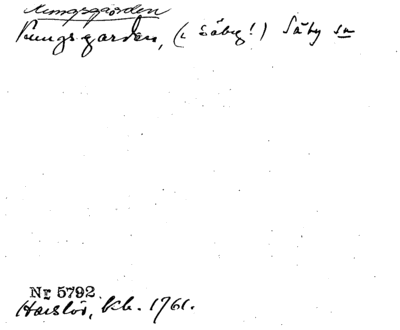 Kungsgården
Kungsgarden, (i Säby!) Säby sn
Nr 5792
Harslöv, kb. 1761.